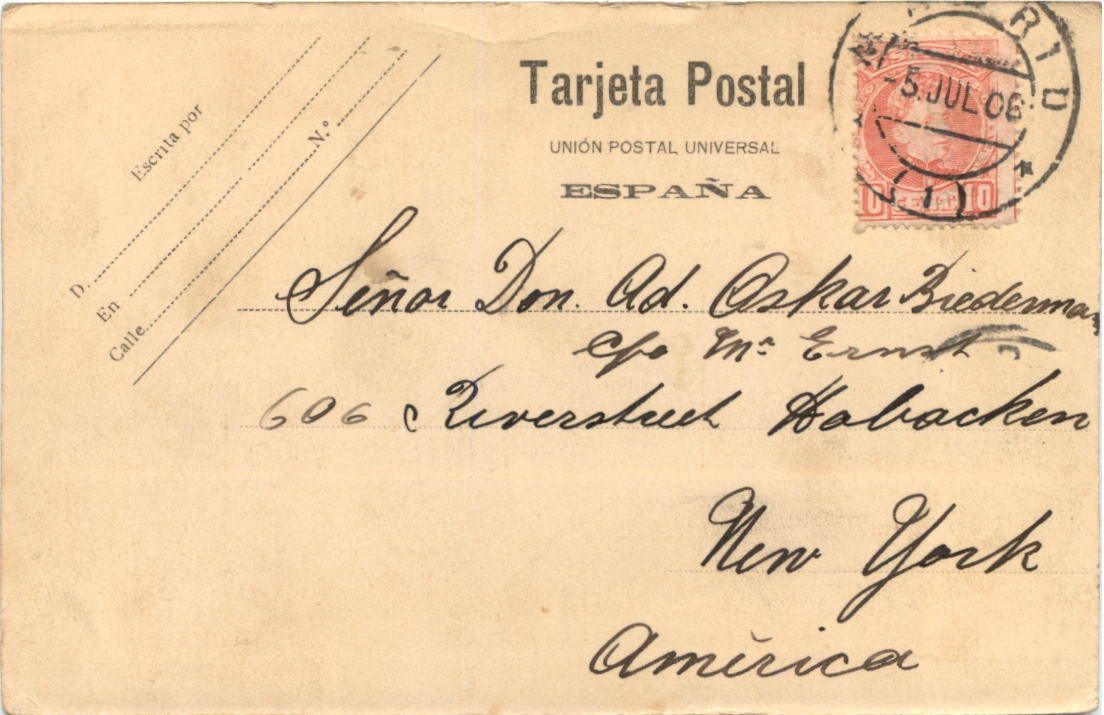 Tarjeta Postal
UNIÓN POSTAL UNIVERSAL
ESPAÑA
Escrita por
D.
En
Calle
N.º
RID
-5.JUL.06
(1)
10 10
Señor Don. Ad. Oskar Biedermann
c/o Mr Ernst
606 Riverstreet Hobacken
New York
América